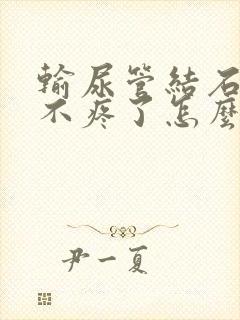 輸尿管結石
不疼了怎麼
尹一夏